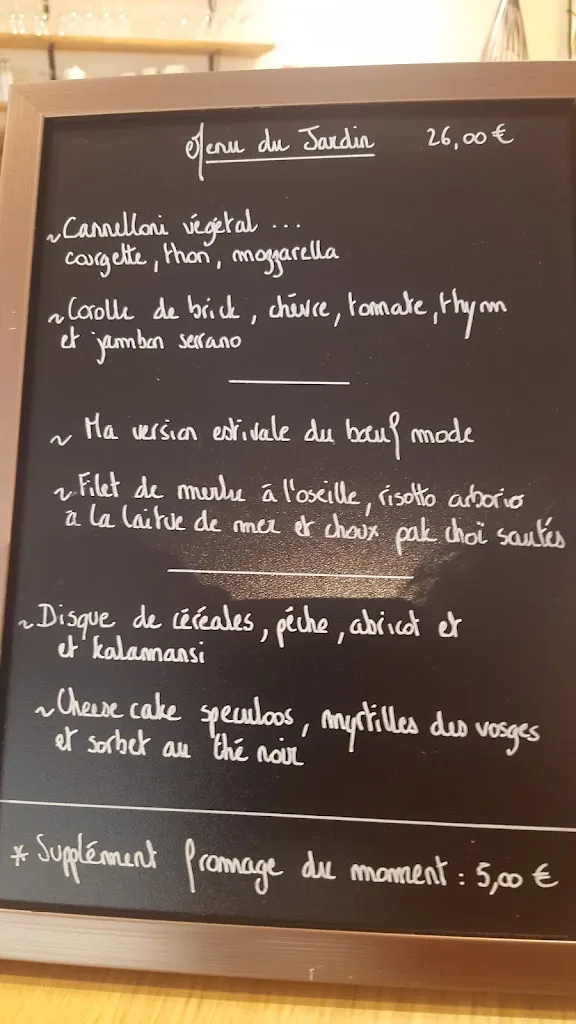 Menu du Jardin 26,00 €
~ Cannelloni végétal ...
courgette, thon, mozzarella
~ Corolle de brick, chèvre, tomate, thym
et jambon serrano
~ Ma version estivale du bœuf mode
~ Filet de merlu à l'oseille, risotto arborio
à la laitue de mer et choux pak choï sautés
~ Disque de céréales, pêche, abricot et
et kalamansi
~ Cheese cake speculoos, myrtilles des vosges
et sorbet au thé noir
* Supplément fromage du moment : 5,00 €